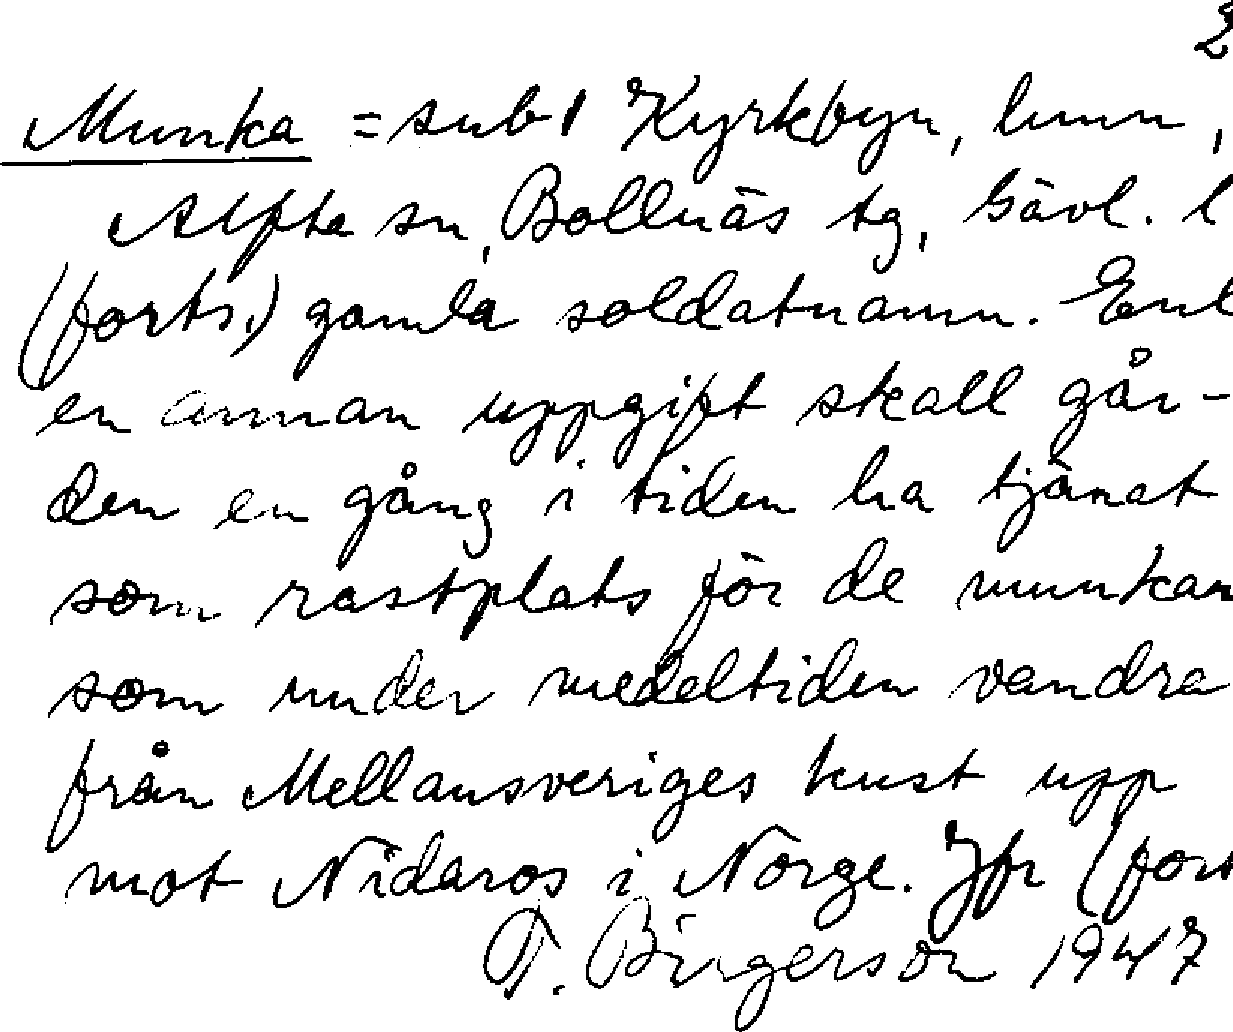 2
Munka = sub 1 Kyrkbyn, hmn,
Alfta sn, Bollnäs tg, Gävl. l
(forts.) gamla soldatnamn. Enl
en annan uppgift skall går-
den en gång i tiden ha tjänat
som rastplats för de munkar
som under medeltiden vandra
från Mellansveriges kust upp
mot Nidaros i Norge. Jfr (fort
T. Birgerson 1947